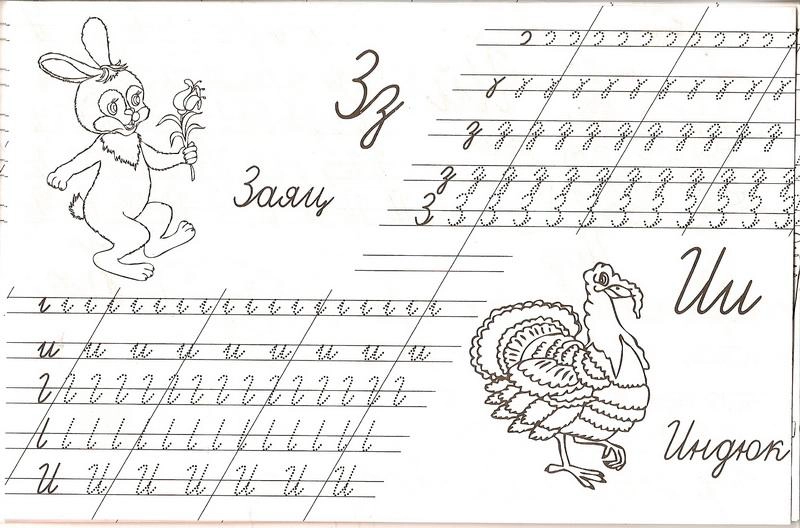 Зз
Заяц
з
з
З
Ии
и
И
Индюк